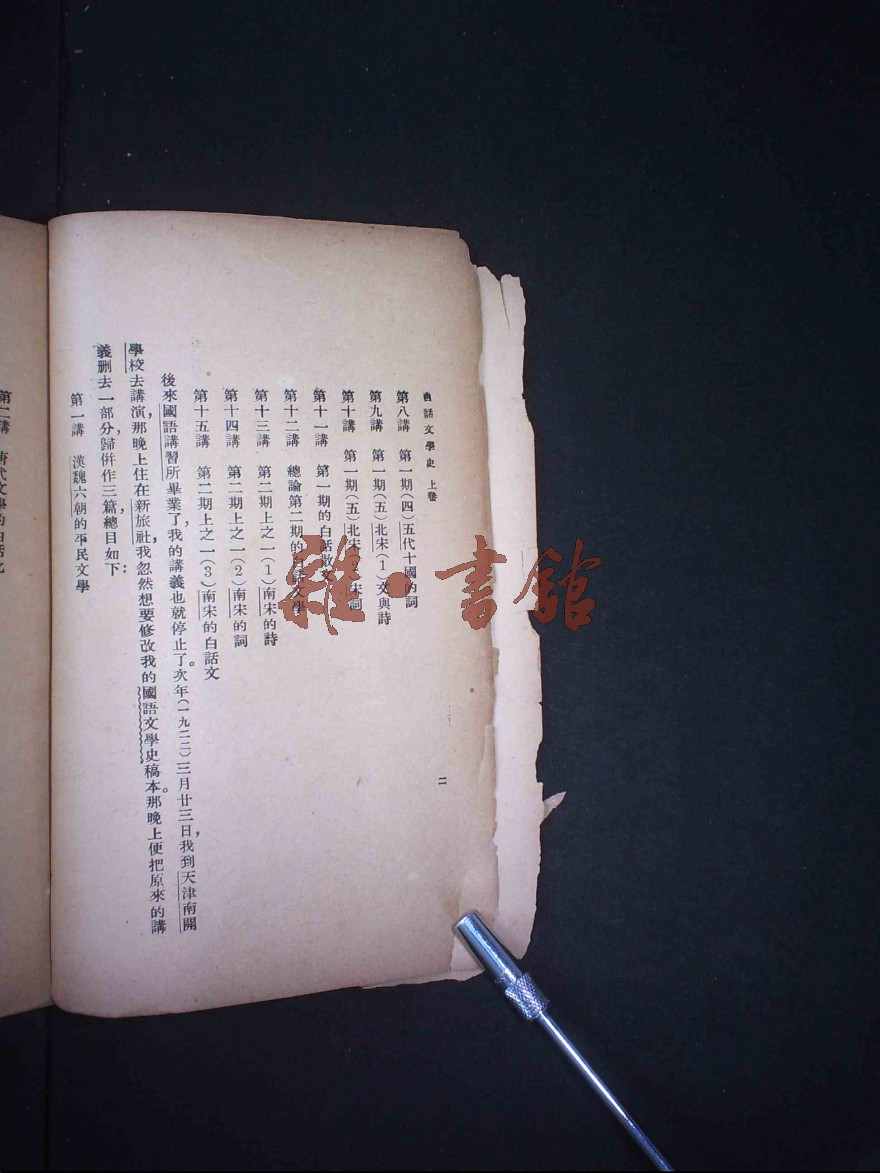 白話文學史 上卷
二
第八講 第一期(四)五代十國的詞
第九講 第一期(五)北宋(1)文與詩
第十講 第一期(五)北宋(2)宋詞
第十一講 第一期的白話散文
第十二講 總論第二期的白話文學
第十三講 第二期上之一(1)南宋的詩
第十四講 第二期上之一(2)南宋的詞
第十五講 第二期上之一(3)南宋的白話文
後來國語講習所畢業了,我的講義也就停止了。次年(一九二二)三月廿三日,我到天津南開
學校去講演,那晚上住在新旅社,我忽然想要修改我的國語文學史稿本。那晚上便把原來的講
義刪去一部分,歸併作三篇,總目如下:
第一講 漢魏六朝的平民文學
第二講 唐代文學的白話化
雜·書館